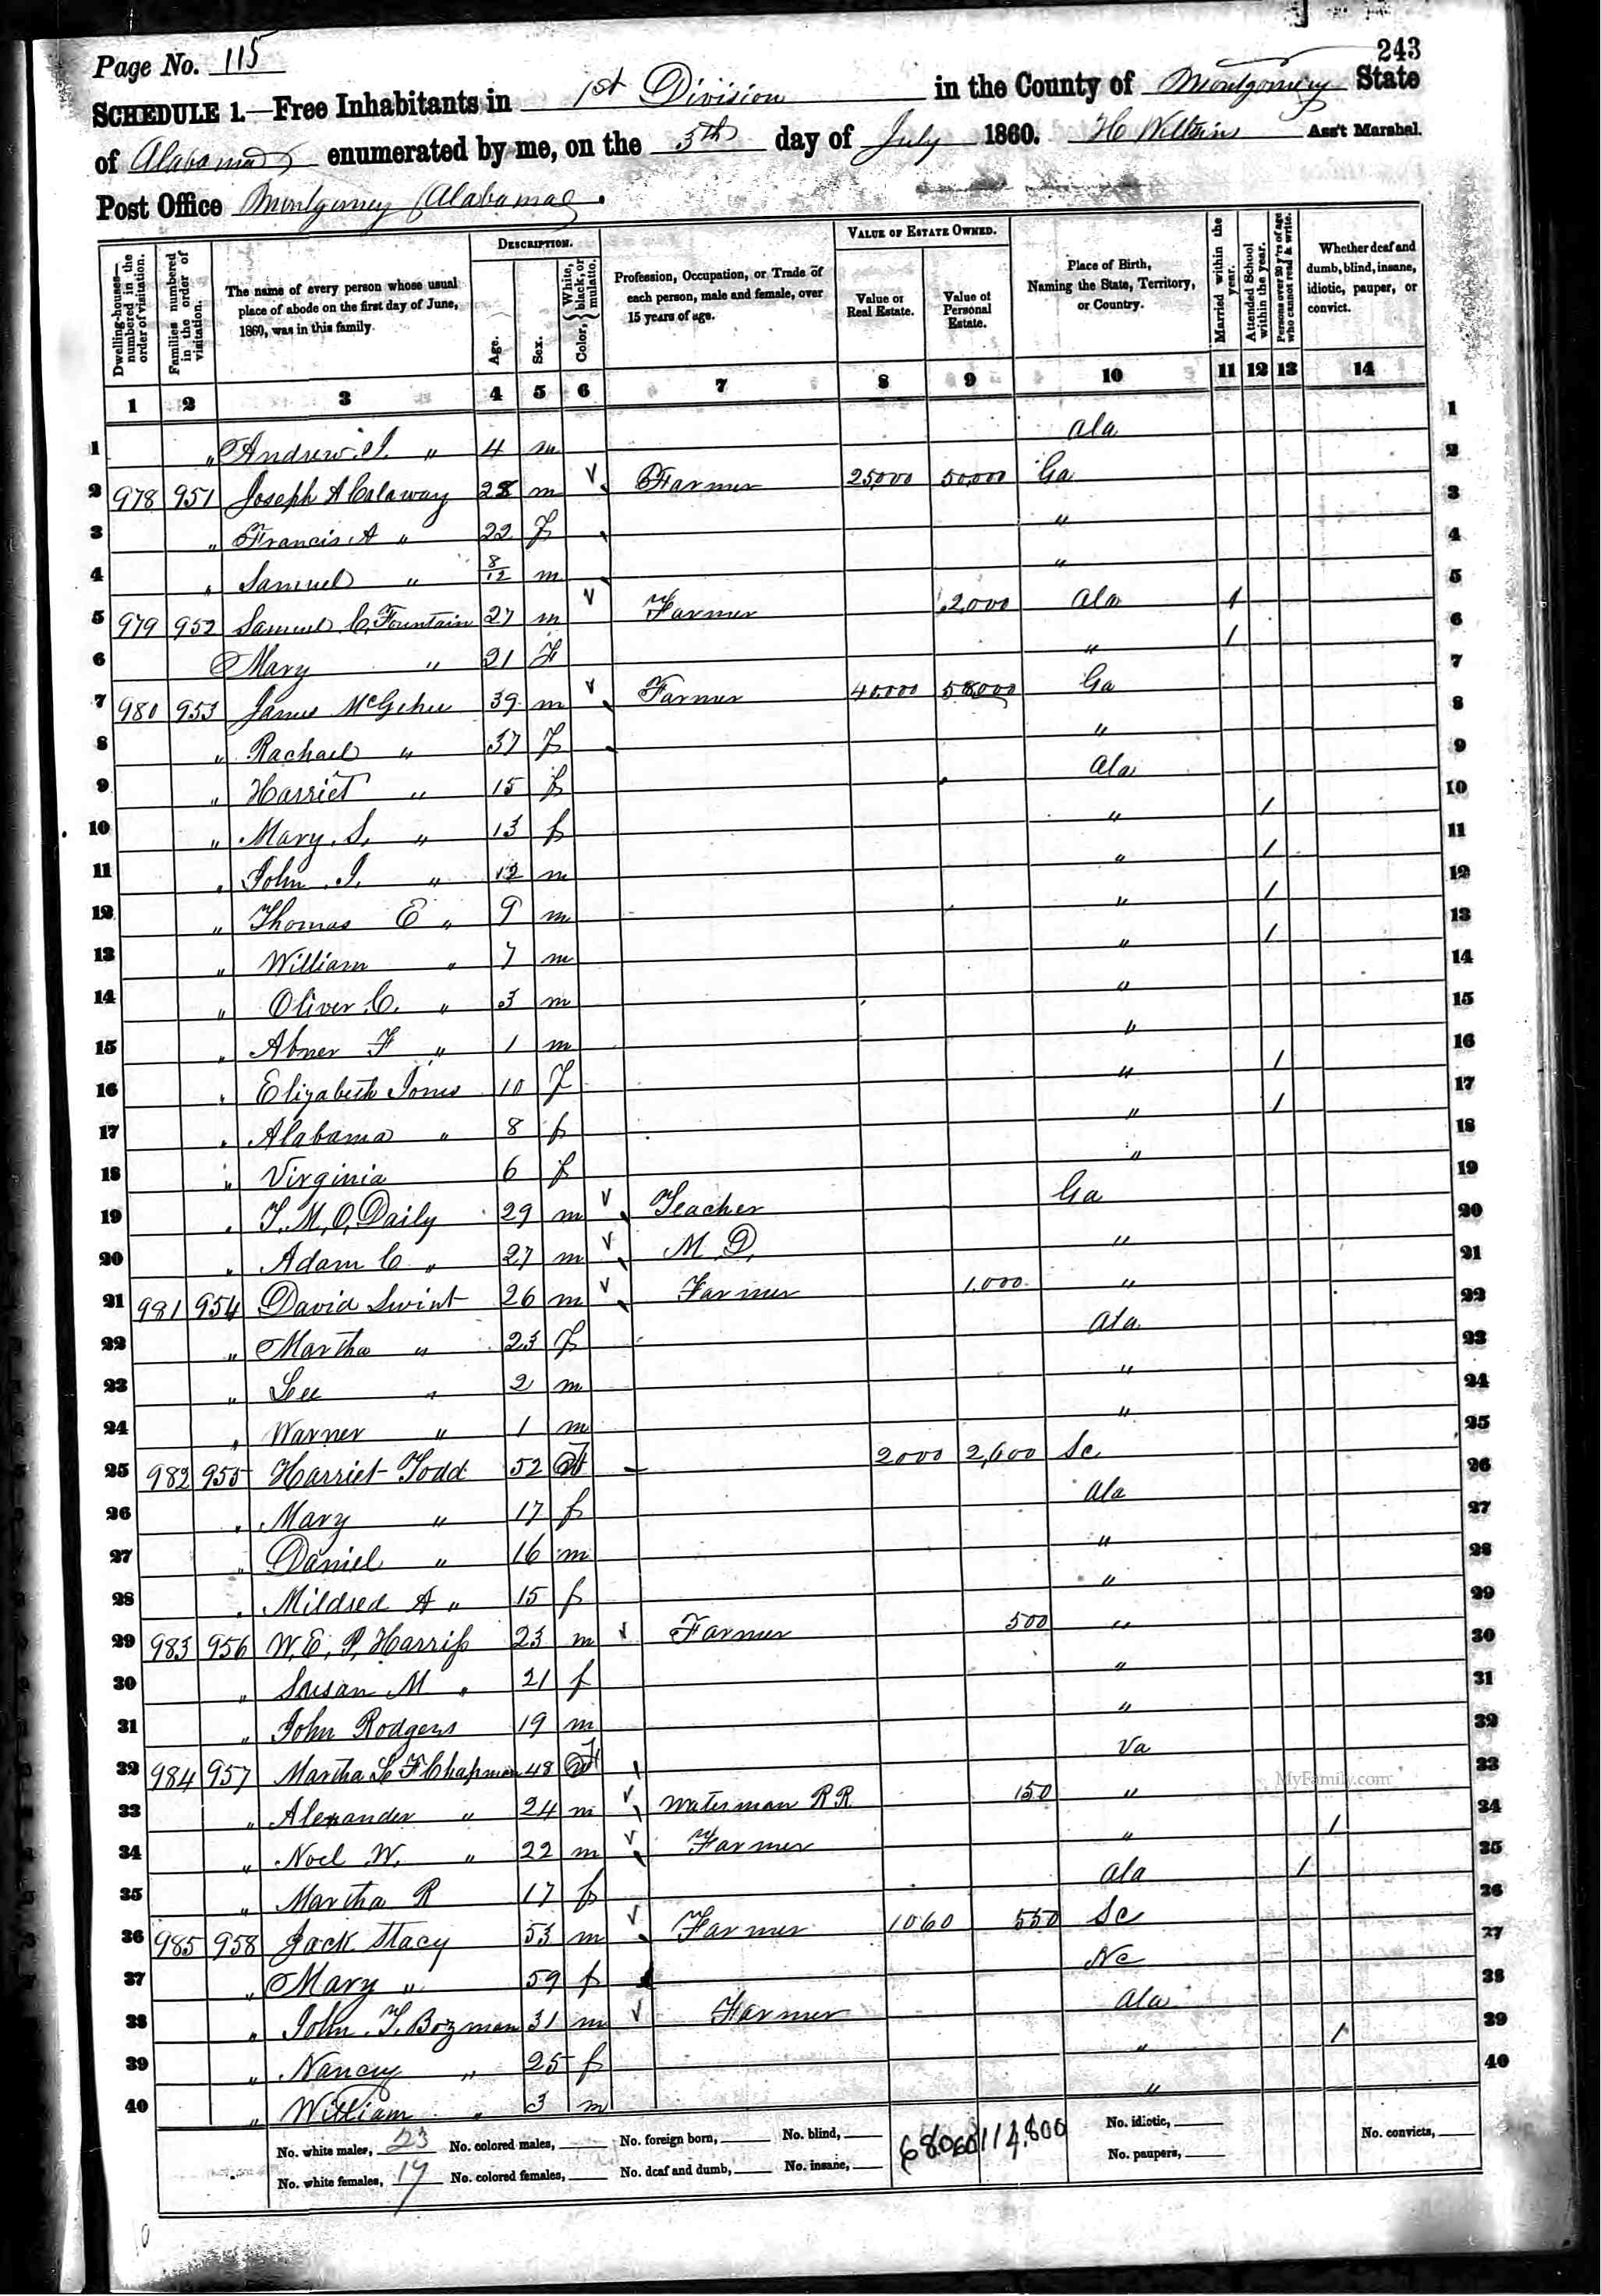 243
Page No. 115
SCHEDULE 1.—Free Inhabitants in 1st Division in the County of Montgomery State
of Alabama enumerated by me, on the 5th day of July 1860. Ass't Marshal.
Post Office Montgomery Alabama
Dwelling-houses—numbered in the order of visitation.
Families numbered in the order of visitation.
The name of every person whose usual place of abode on the first day of June, 1860, was in this family.
DESCRIPTION.
Age.
Sex.
Color, { White, black, or mulatto.
Profession, Occupation, or Trade of each person, male and female, over 15 years of age.
VALUE OF ESTATE OWNED.
Value of Real Estate.
Value of Personal Estate.
Place of Birth, Naming the State, Territory, or Country.
Married within the year.
Attended School within the year.
Persons over 20 y'rs of age who cannot read & write.
Whether deaf and dumb, blind, insane, idiotic, pauper, or convict.
1 2 3 4 5 6 7 8 9 10 11 12 13 14
1 " Andrew J. " 4 m Ala 1
2 978 951 Joseph A Calaway 28 m Farmer 25,000 50,000 Ga 2
3 " Francis A " 22 f " 3
4 " Samuel " 8/12 m " 4
5 979 952 Samuel C. Fountain 27 m Farmer 2,000 Ala 1 5
6 Mary " 21 f " 1 6
7 980 953 James McGehee 39 m Farmer 40000 58000 Ga 7
8 " Rachael " 37 f " 8
9 " Harriet " 15 f Ala 9
10 " Mary S. " 13 f " 1 10
11 " John J. " 12 m " 1 11
12 " Thomas E " 9 m " 1 12
13 " William " 7 m " 1 13
14 " Oliver C. " 3 m " 14
15 " Abner F " 1 m " 15
16 " Elizabeth Jones 10 f " 1 16
17 " Alabama " 8 f " 1 17
18 " Virginia 6 f " 18
19 " T. M. O. Daily 29 m Teacher Ga 19
20 " Adam C " 27 m M D. " 20
21 981 954 David Swint 26 m Farmer 1,000 " 21
22 " Martha " 23 f Ala 22
23 " Lee " 2 m " 23
24 " Warner " 1 m " 24
25 982 955 Harriet Todd 52 f 2000 2,600 Sc 25
26 " Mary " 17 f Ala 26
27 " Daniel " 16 m " 27
28 " Mildred A " 15 f " 28
29 983 956 W. E. P. Harriss 23 m Farmer 500 " 29
30 " Susan M " 21 f " 30
31 " John Rodgers 19 m " 31
32 984 957 Martha L F Chapman 48 f Va 32
33 " Alexander " 24 m Waterman R R 150 " 33
34 " Noel W. " 22 m Farmer " 1 34
35 " Martha R 17 f Ala 1 35
36 985 958 Jack Stacy 53 m Farmer 1060 550 Sc 36
37 " Mary " 59 f Nc 37
38 " John T. Bozman 31 m Farmer Ala 38
39 " Nancy " 25 f " 1 39
40 " William " 3 m " 40
No. white males, 23 No. colored males, No. foreign born, No. blind, 68060 114,800 No. idiotic, No. convicts,
No. white females, 17 No. colored females, No. deaf and dumb, No. insane, No. paupers,
MyFamily.com